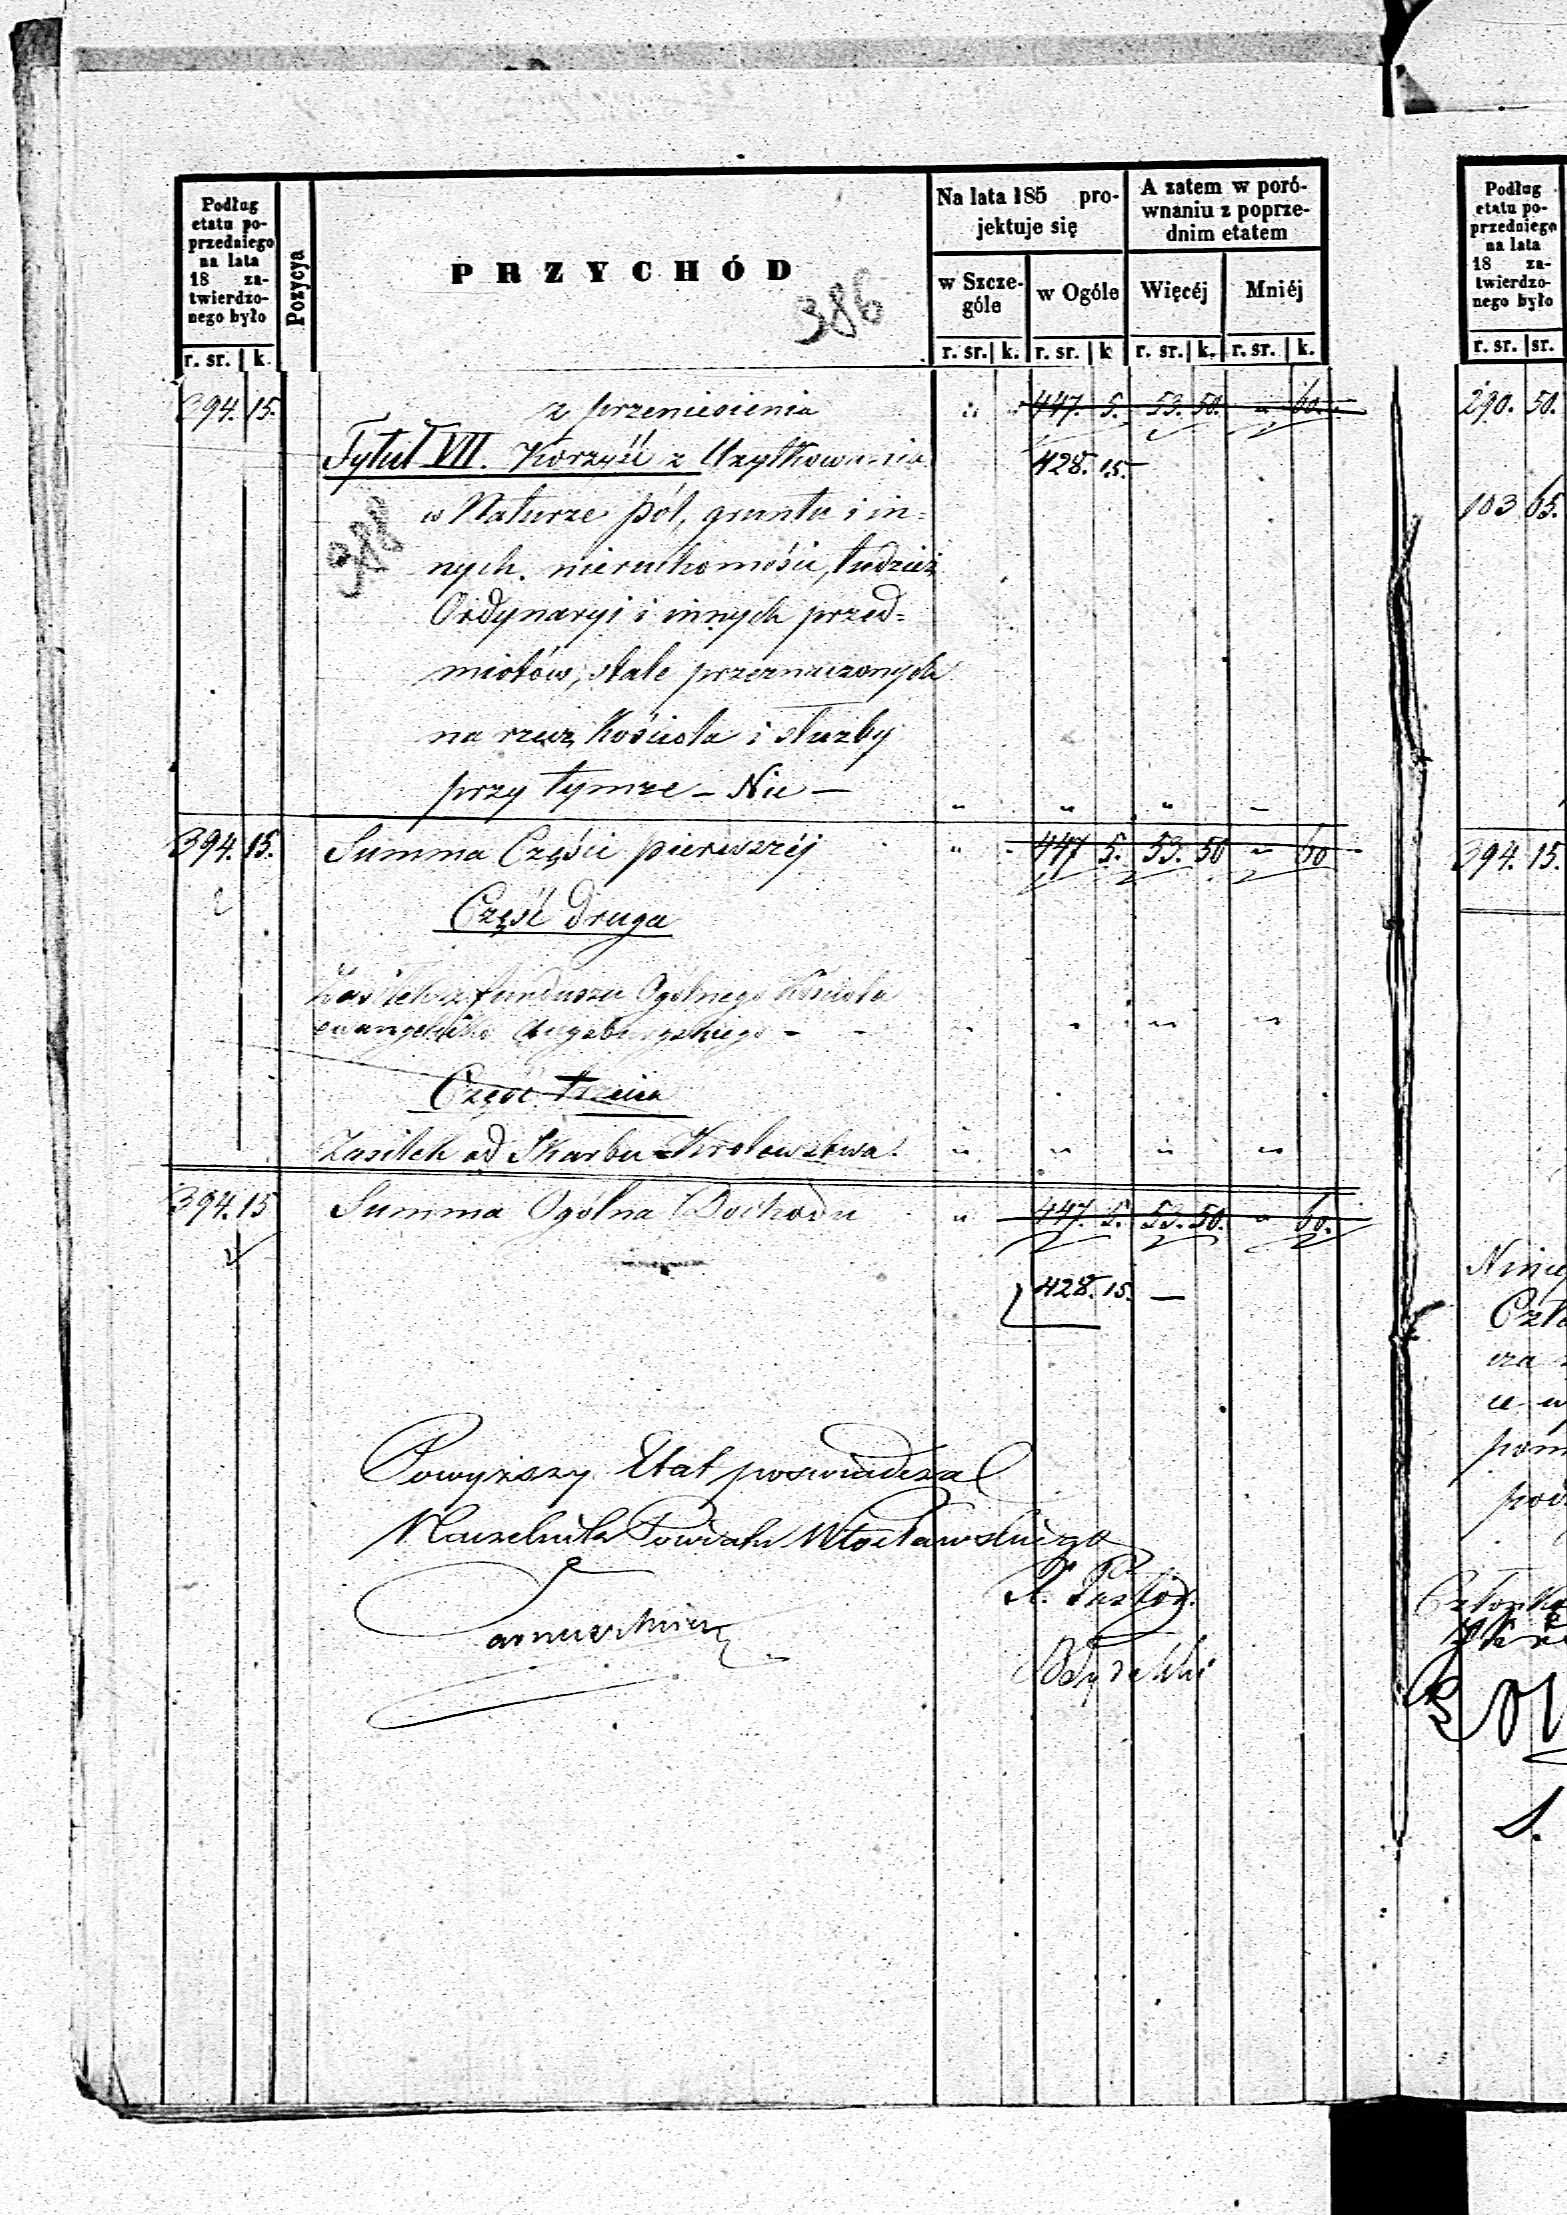 Podług etatu poprzedniego na lata 18 zatwierdzonego było
Pozycya
PRZYCHÓD
386
Na lata 185 projektuje się
A zatem w porównaniu z poprzednim etatem
w Szczególe
w Ogóle
Więcéj
Mniéj
r. sr. k. r. sr. k r. sr. k. r. sr. k. r. sr. k.
394. 15. z przeniesienia " " 447. 5. 53. 50. " 60.
Tytuł VII. Korzyść z Użytkowania 428. 15.
w Naturze pól, gruntu i in=
388
nych nieruchomości, tudzież
Ordynaryi i innych przed=
miotów, stale przeznaczonych
na rzecz Kościoła i służby
przy tymże – Nic – " " " –
394. 15. Summa Części pierwszéj " 447 5. 53. 50 " 60
Część druga
Zasiłek z funduszu Ogólnego Kościoła
Augsburgskiego - - " " " "
Część trzecia
Zasiłek od Skarbu Królowstwa. " " " "
394. 15 Summa Ogólna Dochodu " 447. 5. 53. 50. " 60.
428. 15. —
Powyższy Etat poświadczał
Naczelnik Powiatu Włocławskiego
X. Pastor.
Podług etatu poprzedniego na lata 18 zatwierdzonego było
r. sr. sr.
290. 50.
103 65.
394. 15.